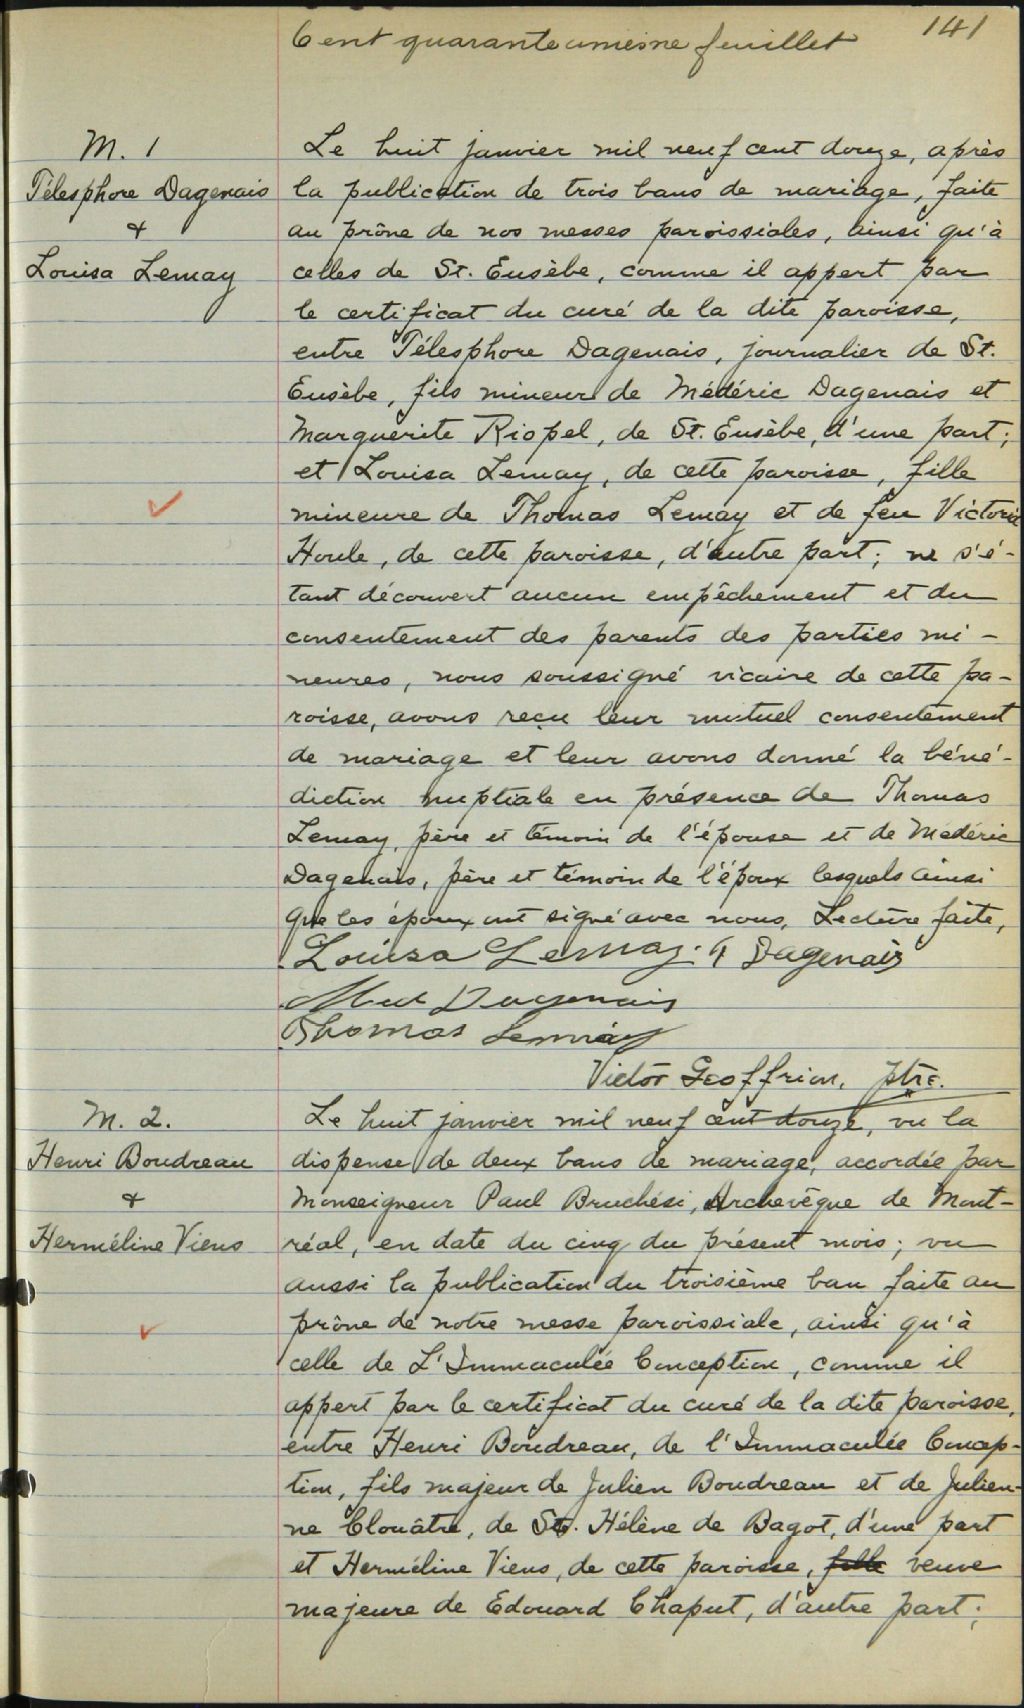 Cent quarante unième feuillet
141
M. 1
Télesphore Dagenais
&
Louisa Lemay
Le huit janvier mil neuf cent douze, après
la publication de trois bans de mariage, faite
au prône de nos messes paroissiales, ainsi qu'à
celles de St. Eusèbe, comme il appert par
le certificat du curé de la dite paroisse,
entre Télesphore Dagenais, journalier de St.
Eusèbe, fils mineur de Médéric Dagenais et
Marguerite Riopel, de St. Eusèbe, d'une part;
et Louisa Lemay, de cette paroisse, fille
mineure de Thomas Lemay et de feu Victorie
Houle, de cette paroisse, d'autre part; ne s'é-
tant découvert aucun empêchement et du
consentement des parents des parties mi-
neures, nous soussigné vicaire de cette pa-
roisse, avons reçu leur mutuel consentement
de mariage et leur avons donné la béné-
diction nuptiale en présence de Thomas
Lemay, père et témoin de l'épouse et de Médéric
Dagenais, père et témoin de l'époux lesquels ainsi
que les époux ont signé avec nous. Lecture faite,
Louisa Lemay. T Dagenais
Med Dagenais
Thomas Lemay
Victor Geoffrion, ptre.
M. 2.
Henri Boudreau
&
Herméline Viens
Le huit janvier mil neuf cent douze, vu la
dispense de deux bans de mariage, accordée par
Monseigneur Paul Bruchési, Archevêque de Mont-
réal, en date du cinq du présent mois; vu
aussi la publication du troisième ban faite au
prône de notre messe paroissiale, ainsi qu'à
celle de L'Immaculée Conception, comme il
appert par le certificat du curé de la dite paroisse,
entre Henri Boudreau, de l'Immaculée Concep-
tion, fils majeur de Julien Boudreau et de Julien-
ne Clouâtre, de Ste. Hélène de Bagot, d'une part
et Herméline Viens, de cette paroisse, fille veuve
majeure de Edouard Chaput, d'autre part;